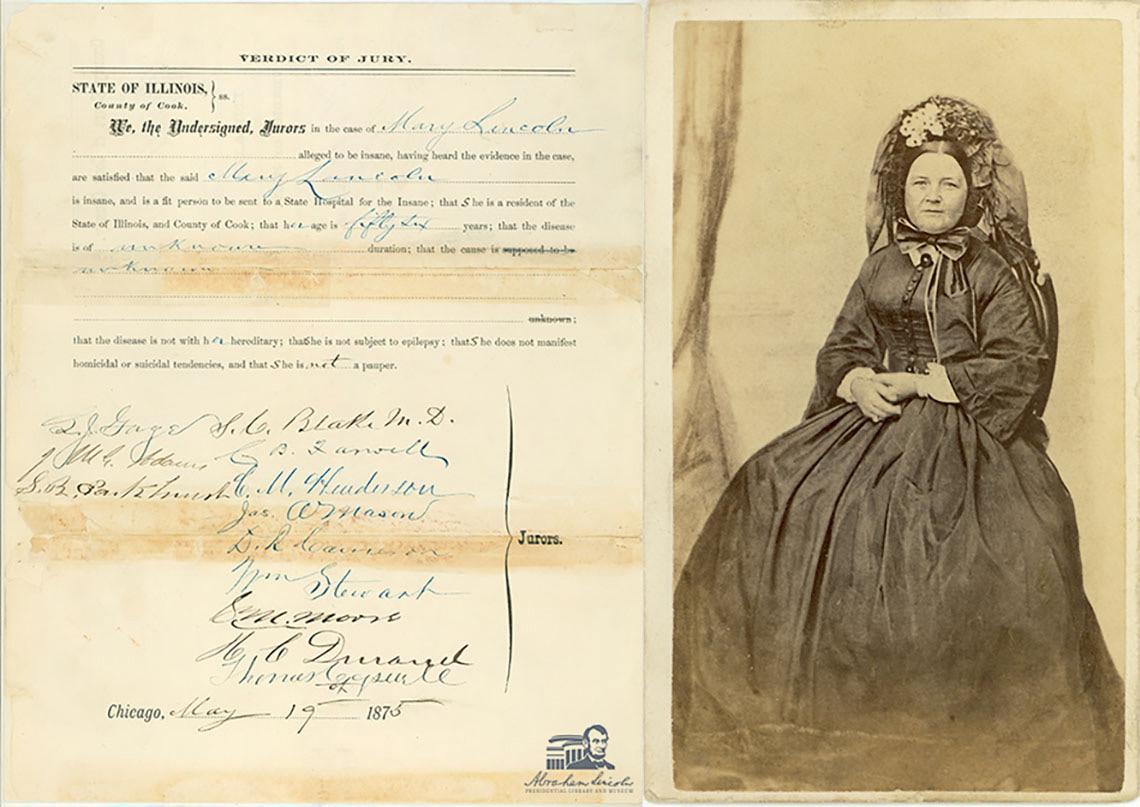 VERDICT OF JURY.
STATE OF ILLINOIS, } ss.
County of Cook.
We, the Undersigned, Jurors in the case of Mary Lincoln
alleged to be insane, having heard the evidence in the case,
are satisfied that the said Mary Lincoln
is insane, and is a fit person to be sent to a State Hospital for the Insane; that She is a resident of the
State of Illinois, and County of Cook; that her age is fifty six years; that the disease
is of unknown duration; that the cause is supposed to be
unknown
unknown;
that the disease is not with her hereditary; that She is not subject to epilepsy; that She does not manifest
homicidal or suicidal tendencies, and that She is not a pauper.
L. J. Gage S. C. Blake M. D.
J. McG. Adams C. B. Farwell
S. B. Parkhurst C. M. Henderson
Jas. A Mason
D. R. Cameron
Wm Stewart
Jurors.
Moore
H. C. Durand
Thomas Cogswell
Chicago, May 19 1875
Abraham Lincoln
PRESIDENTIAL LIBRARY AND MUSEUM